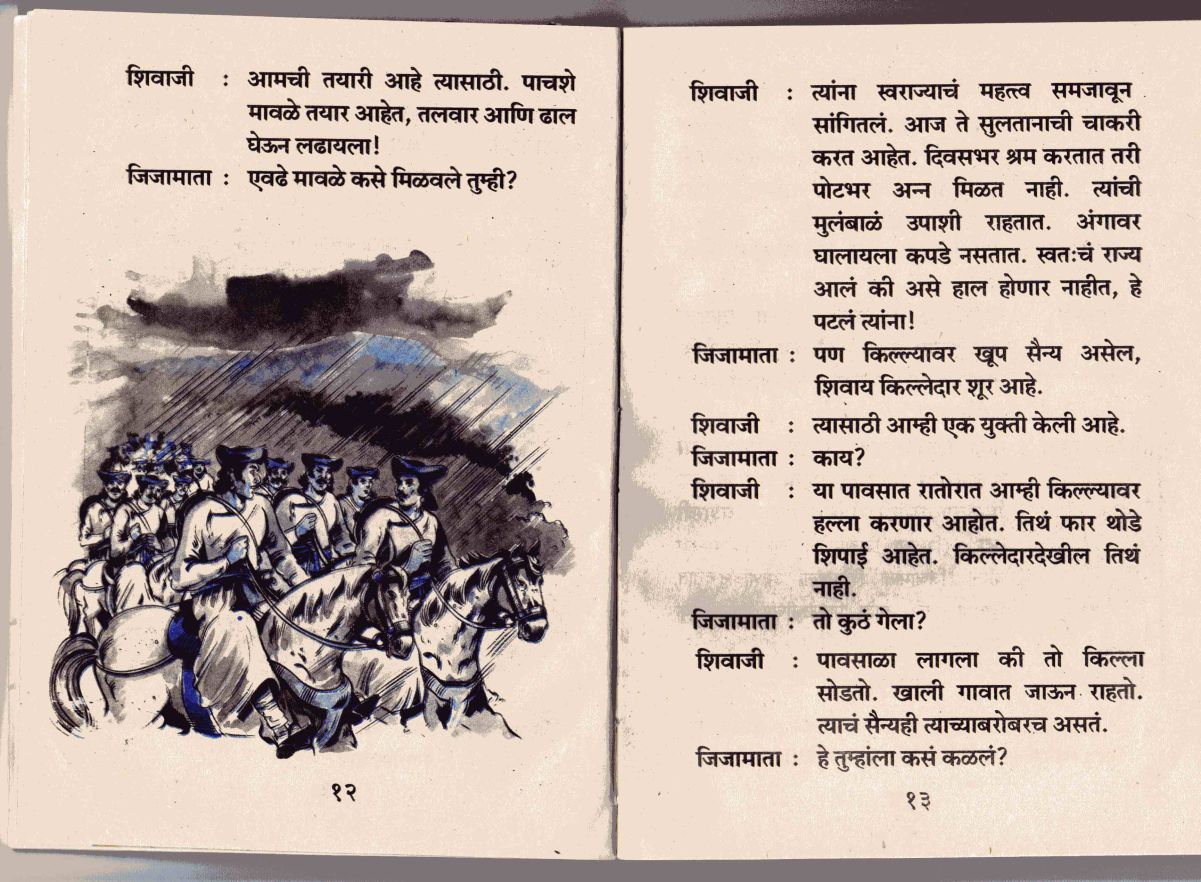 शिवाजी : आमची तयारी आहे त्यासाठी. पाचशे
मावळे तयार आहेत, तलवार आणि ढाल
घेऊन लढायला!
जिजामाता : एवढे मावळे कसे मिळवले तुम्ही?
१२
शिवाजी : त्यांना स्वराज्याचं महत्त्व समजावून
सांगितलं. आज ते सुलतानाची चाकरी
करत आहेत. दिवसभर श्रम करतात तरी
पोटभर अन्न मिळत नाही. त्यांची
मुलंबाळं उपाशी राहतात. अंगावर
घालायला कपडे नसतात. स्वतःचं राज्य
आलं की असे हाल होणार नाहीत, हे
पटलं त्यांना!
जिजामाता : पण किल्ल्यावर खूप सैन्य असेल,
शिवाय किल्लेदार शूर आहे.
शिवाजी : त्यासाठी आम्ही एक युक्ती केली आहे.
जिजामाता : काय?
शिवाजी : या पावसात रातोरात आम्ही किल्ल्यावर
हल्ला करणार आहोत. तिथं फार थोडे
शिपाई आहेत. किल्लेदारदेखील तिथं
नाही.
जिजामाता : तो कुठं गेला?
शिवाजी : पावसाळा लागला की तो किल्ला
सोडतो. खाली गावात जाऊन राहतो.
त्याचं सैन्यही त्याच्याबरोबरच असतं.
जिजामाता : हे तुम्हांला कसं कळलं?
१३